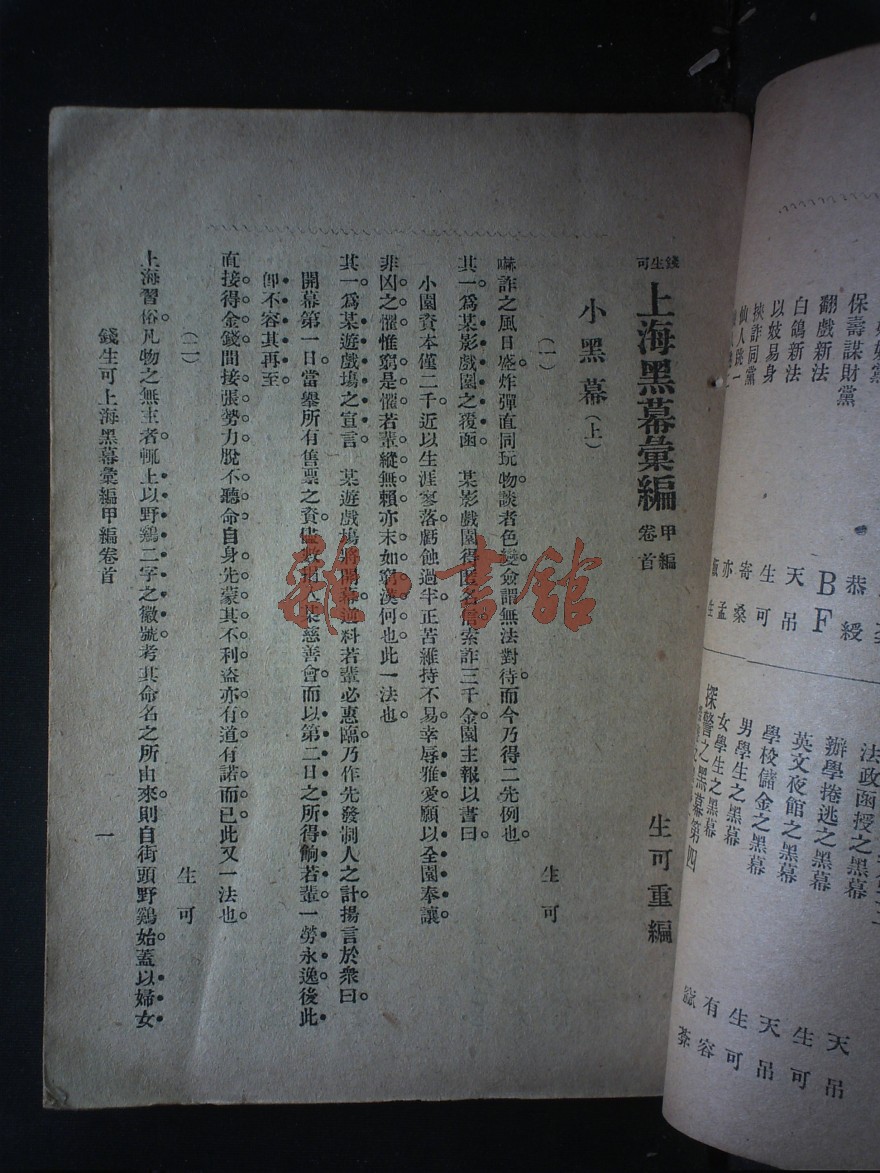 保壽謀財黨
翻戲新法
白鴿新法
以妓易身
挾詐同黨
仙人跳一
恭綬
BF
天吊
生可
寄桑
亦孟
法政函授之黑幕
辦學捲逃之黑幕
英文夜館之黑幕
學校儲金之黑幕
男學生之黑幕
女學生之黑幕
探警之黑幕第四
天吊
生可
天吊
生可
有容
錢生可
上海黑幕彙編
甲編
卷首
生可重編
小黑幕(上)
(一)
生可
嚇詐之風日盛炸彈直同玩物談者色變僉謂無法對待而今乃得二先例也。
其一爲某影戲園之覆函。某影戲園得匿名信索詐三千金園主報以書曰。
小園資本僅二千近以生涯寥落虧蝕過半正苦維持不易幸辱雅愛願以全園奉讓。
非凶之懼惟窮是懼若輩縱無賴亦末如窮漢何也此一法也。
其一爲某遊戲場之宣言。某遊戲場將開幕逆料若輩必惠臨乃作先發制人之計揚言於衆曰。
開幕第一日當舉所有售票之資儘數捐入某慈善會而以第二日之所得餉若輩一勞永逸後此
卽不容其再至。
直接得金錢間接張勢力脫不聽命自身先蒙其不利盜亦有道有諾而已此又一法也。
(二)
生可
上海習俗凡物之無主者輒上以野鷄二字之徽號考其命名之所由來則自街頭野鷄始蓋以婦女
錢生可上海黑幕彙編甲編卷首
一
雜·書館